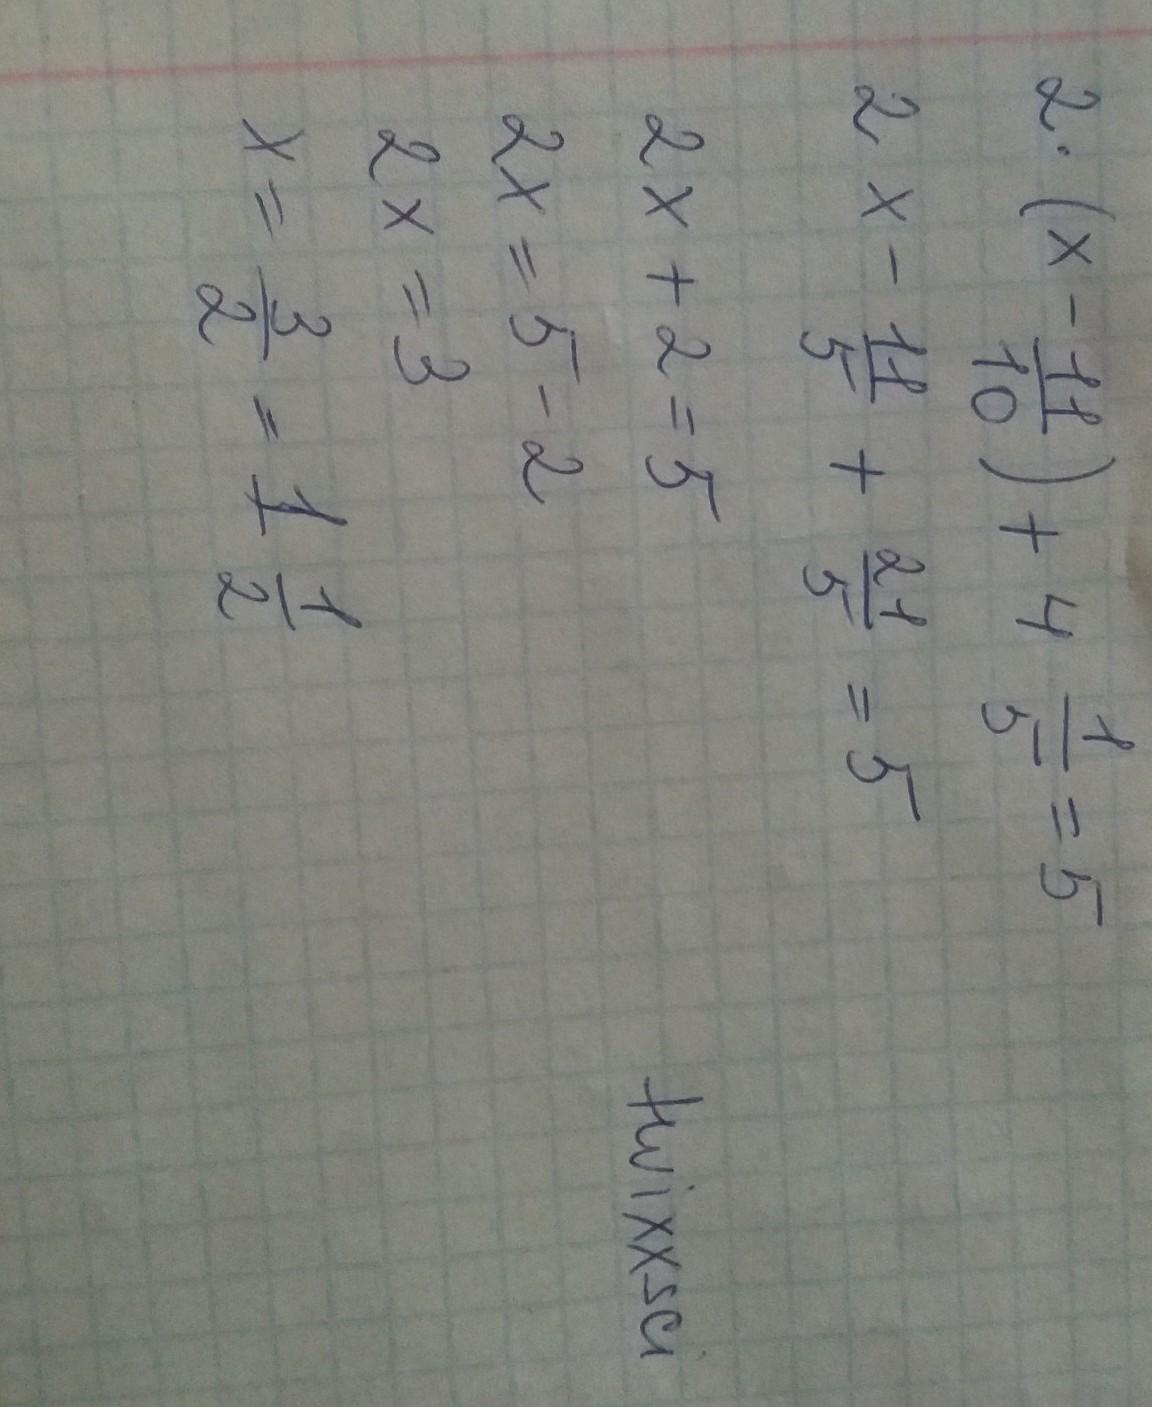 2·(x - 11/10) + 4 1/5 = 5
2x - 11/5 + 21/5 = 5
2x + 2 = 5
2x = 5 - 2
2x = 3
x = 3/2 = 1 1/2
twixxsci